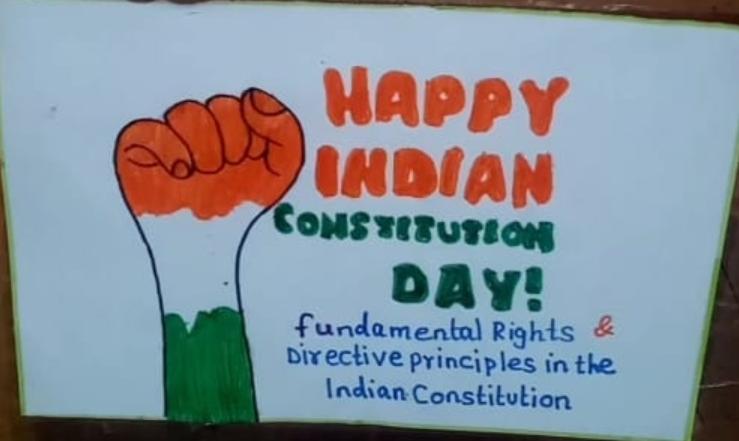 HAPPY
INDIAN
CONSTITUTION
DAY!
fundamental Rights &
Directive principles in the
Indian Constitution